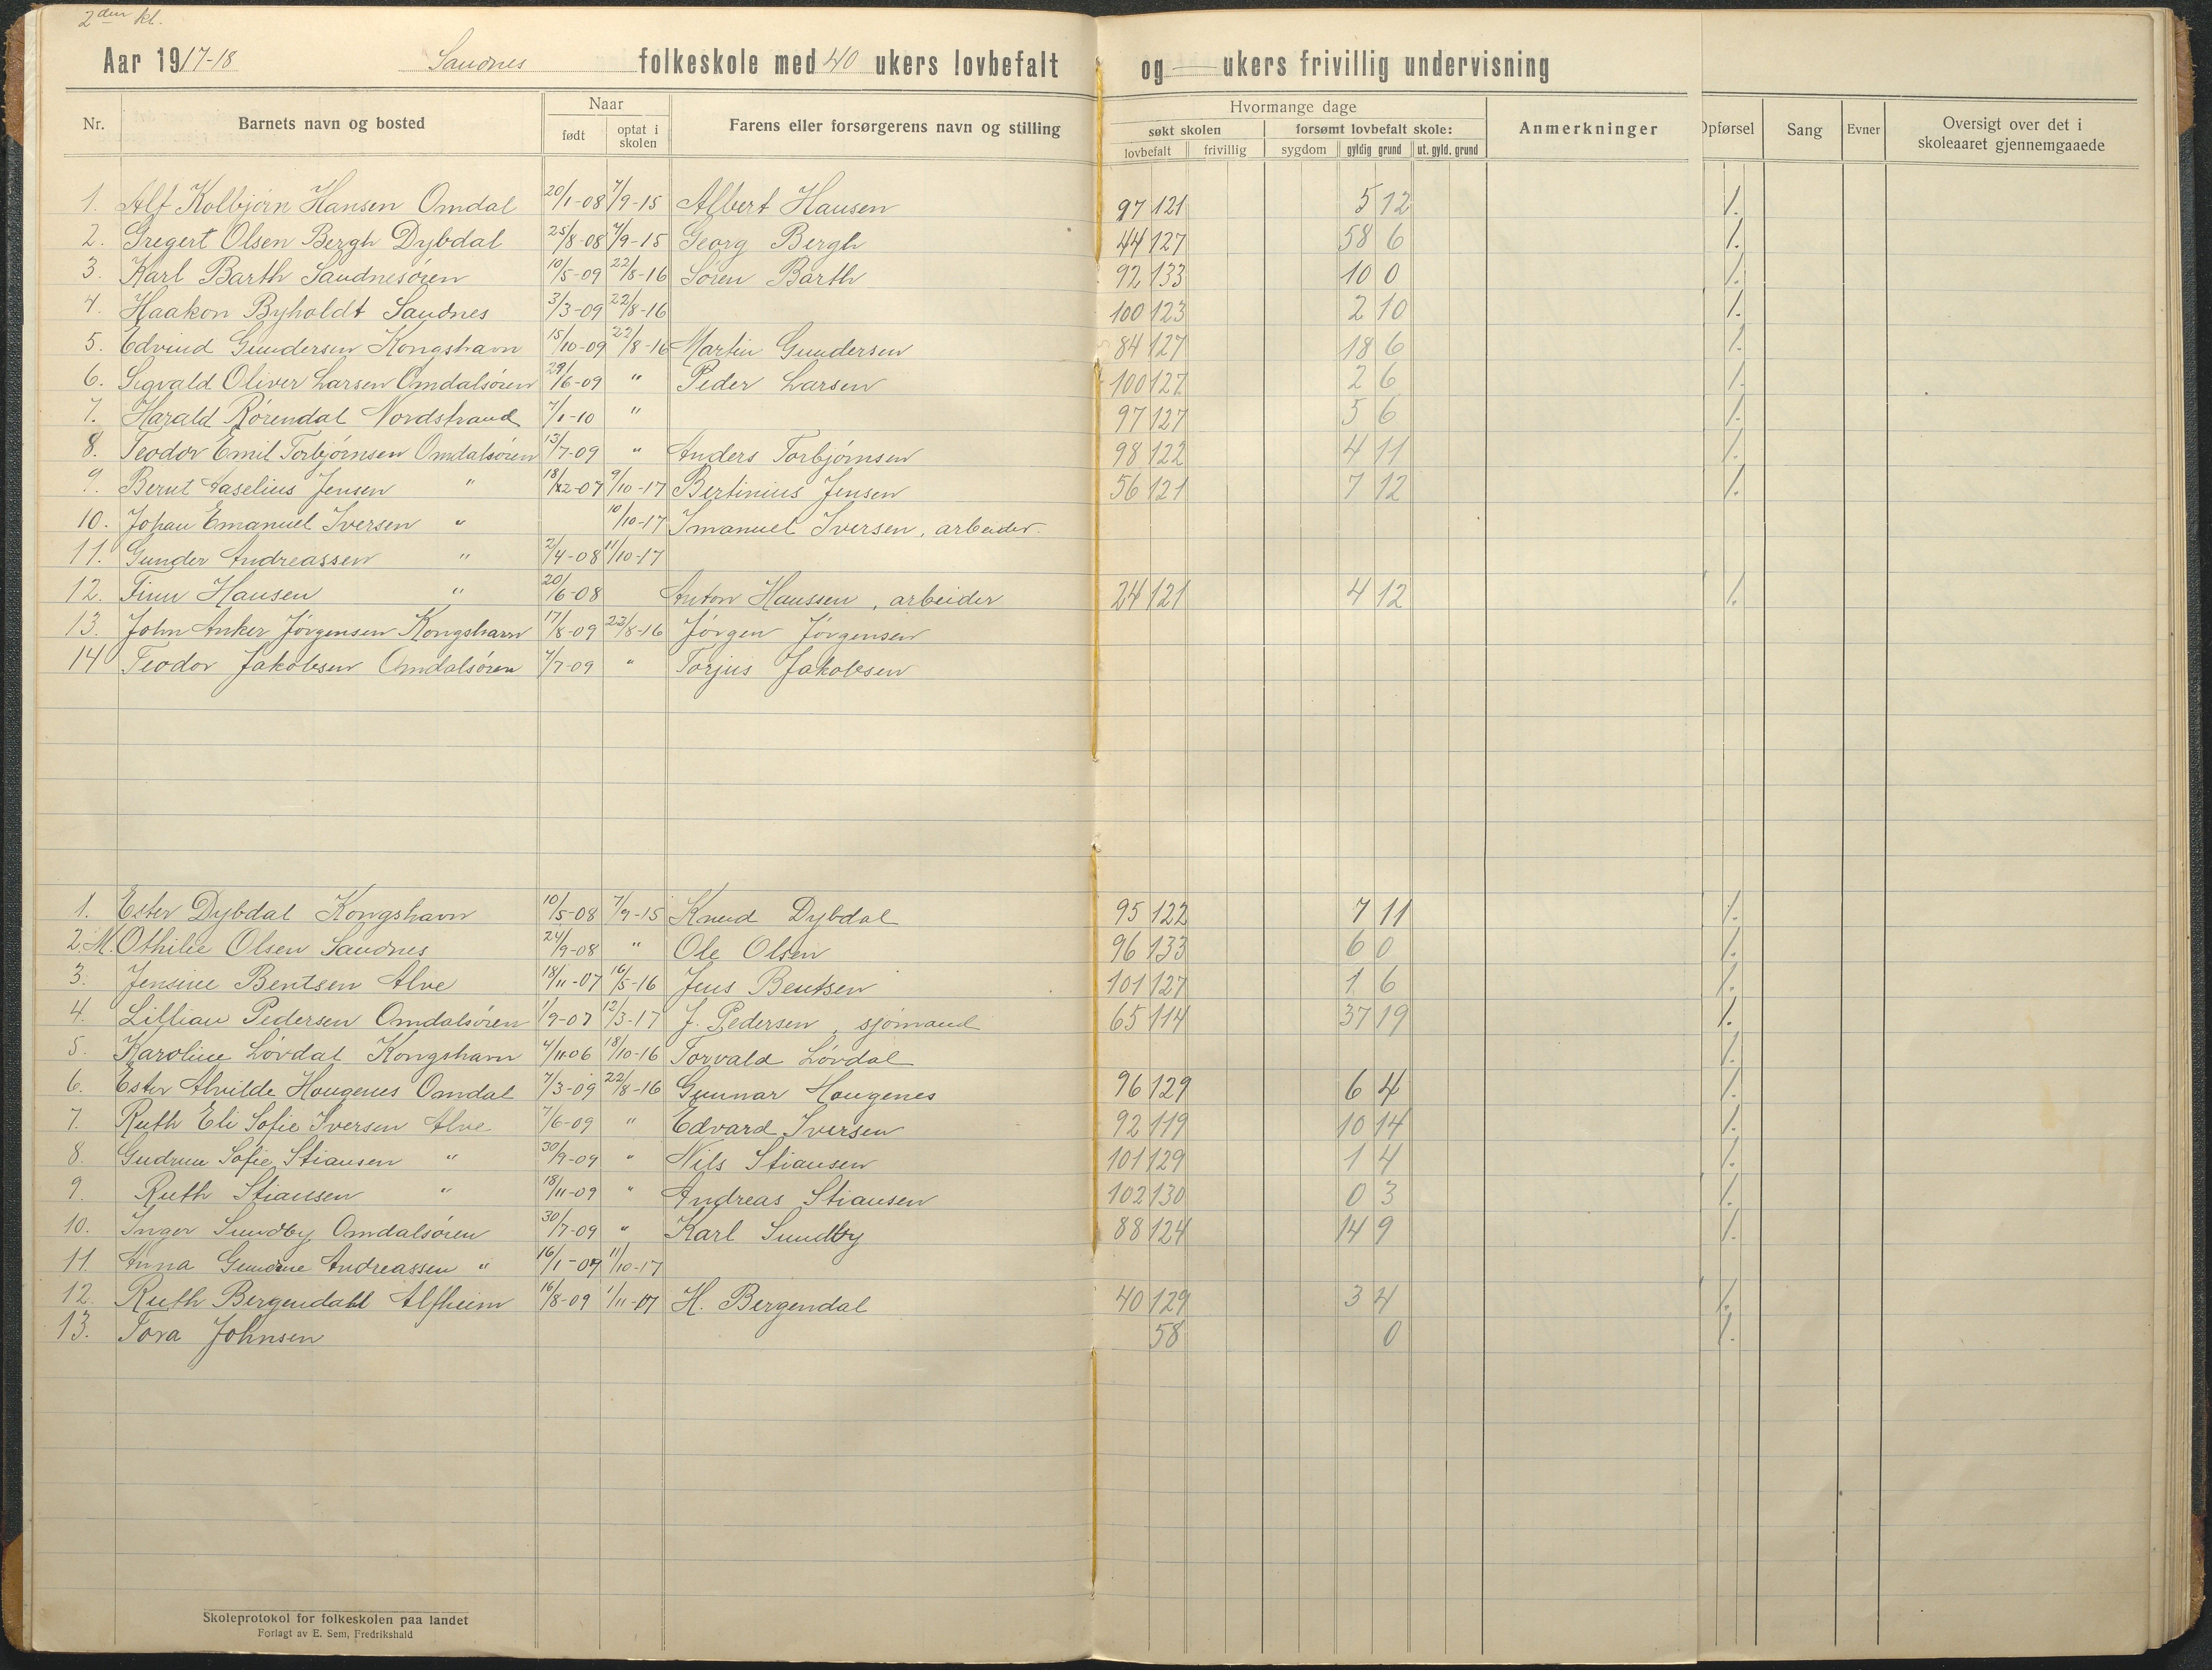 2den kl.
Aar 1917-18 Sandnes folkeskole med 40 ukers lovbefalt og — ukers frivillig undervisning
Nr. Barnets navn og bosted Naar født optat i skolen Farens eller forsørgerens navn og stilling Hvormange dage søkt skolen lovbefalt frivillig forsømt lovbefalt skole: sygdom gyldig grund ut. gyld. grund Anmerkninger Opførsel Sang Evner Oversigt over det i skoleaaret gjennemgaaede
1. Alf Kolbjørn Hansen Omdal 20/1-08 7/9-15 Albert Hansen 97 121 5 12 1.
2. Gregert Olsen Bergh Dybdal 25/8-08 7/9-15 Georg Bergh 44 127 58 6 1.
3. Karl Barth Sandnesøren 10/5-09 22/8-16 Søren Barth 92 133 10 0 1.
4. Haakon Byholdt Sandnes 3/3-09 22/8-16 100 123 2 10 1.
5. Edvind Gundersen Kongshavn 15/10-09 22/8-16 Martin Gundersen 84 127 18 6 1.
6. Sigvald Oliver Larsen Omdalsøren 29/6-09 " Peder Larsen 100 127 2 6 1.
7. Harald Rørendal Nordstrand 7/1-10 " 97 127 5 6 1.
8. Teodor Emil Torbjørnsen Omdalsøren 13/7-09 " Anders Torbjørnsen 98 122 4 11 1.
9. Bernt Aaselius Jensen " 18/12-07 9/10-17 Bertinius Jensen 56 121 7 12 1.
10. Johan Emanuel Iversen " 10/10-17 Imanuel Iversen, arbeider.
11. Gunder Andreassen " 2/4-08 11/10-17
12. Finn Hansen " 20/6-08 Anton Hanssen, arbeider 24 121 4 12 1.
13. John Anker Jørgensen Kongshavn 17/8-09 22/8-16 Jørgen Jørgensen
14 Teodor Jakobsen Omdalsøren 7/7-09 " Torjus Jakobsen
1. Ester Dybdal Kongshavn 10/5-08 7/9-15 Knud Dybdal 95 122 7 11 1.
2. M. Othilie Olsen Sandnes 24/9-08 " Ole Olsen 96 133 6 0 1.
3. Jensine Bentsen Alve 18/11-07 16/5-16 Jens Bentsen 101 127 1 6 1.
4. Lillian Pedersen Omdalsøren 1/9-07 12/3-17 J. Pedersen, sjømand 65 114 37 19 1.
5. Karoline Løvdal Kongshavn 4/11 06 18/10-16 Torvald Løvdal 1.
6. Ester Alvilde Hougenes Omdal 7/3-09 22/8-16 Gunnar Hougenes 96 129 6 4 1.
7. Ruth Eli Sofie Iversen Alve 7/6-09 " Edvard Iversen 92 119 10 14 1.
8. Gudrun Sofie Stiansen " 30/9-09 " Nils Stiansen 101 129 1 4 1.
9. Ruth Stiansen " 18/11-09 " Andreas Stiansen 102 130 0 3 1.
10. Inger Sundby Omdalsøren 30/7-09 " Karl Sundby 88 124 14 9 1.
11. Anna Gundine Andreassen " 16/1-07 11/10-17
12. Ruth Bergendahl Alfheim 16/8-09 1/11-17 H. Bergendal 40 129 3 4 1.
13. Tora Johnsen 58 0 1.
Skoleprotokol for folkeskolen paa landet
Forlagt av E. Sem, Fredrikshald